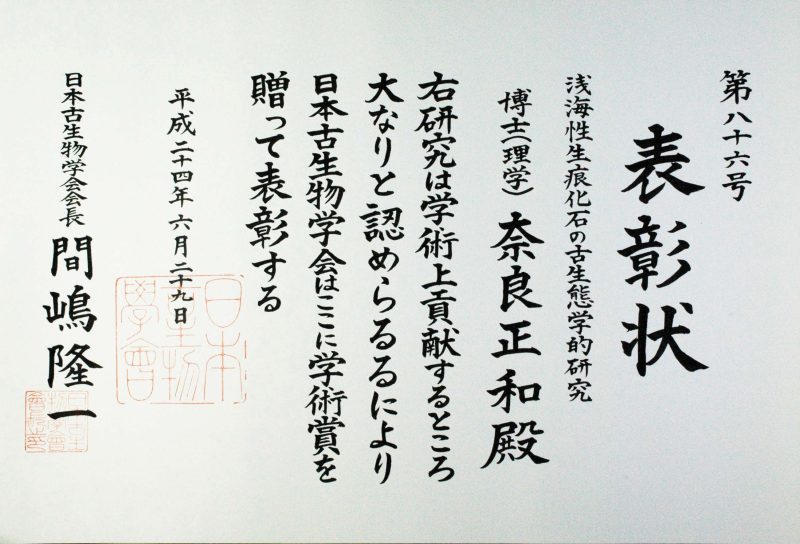 第八十六号
表彰状
浅海性生痕化石の古生態学的研究
博士(理学) 奈良正和殿
右研究は学術上貢献するところ
大なりと認めらるるにより
日本古生物学会はここに学術賞を
贈って表彰する
平成二十四年六月二十九日
日本古生物学会会長 間嶋隆一
日本古
生物
學會